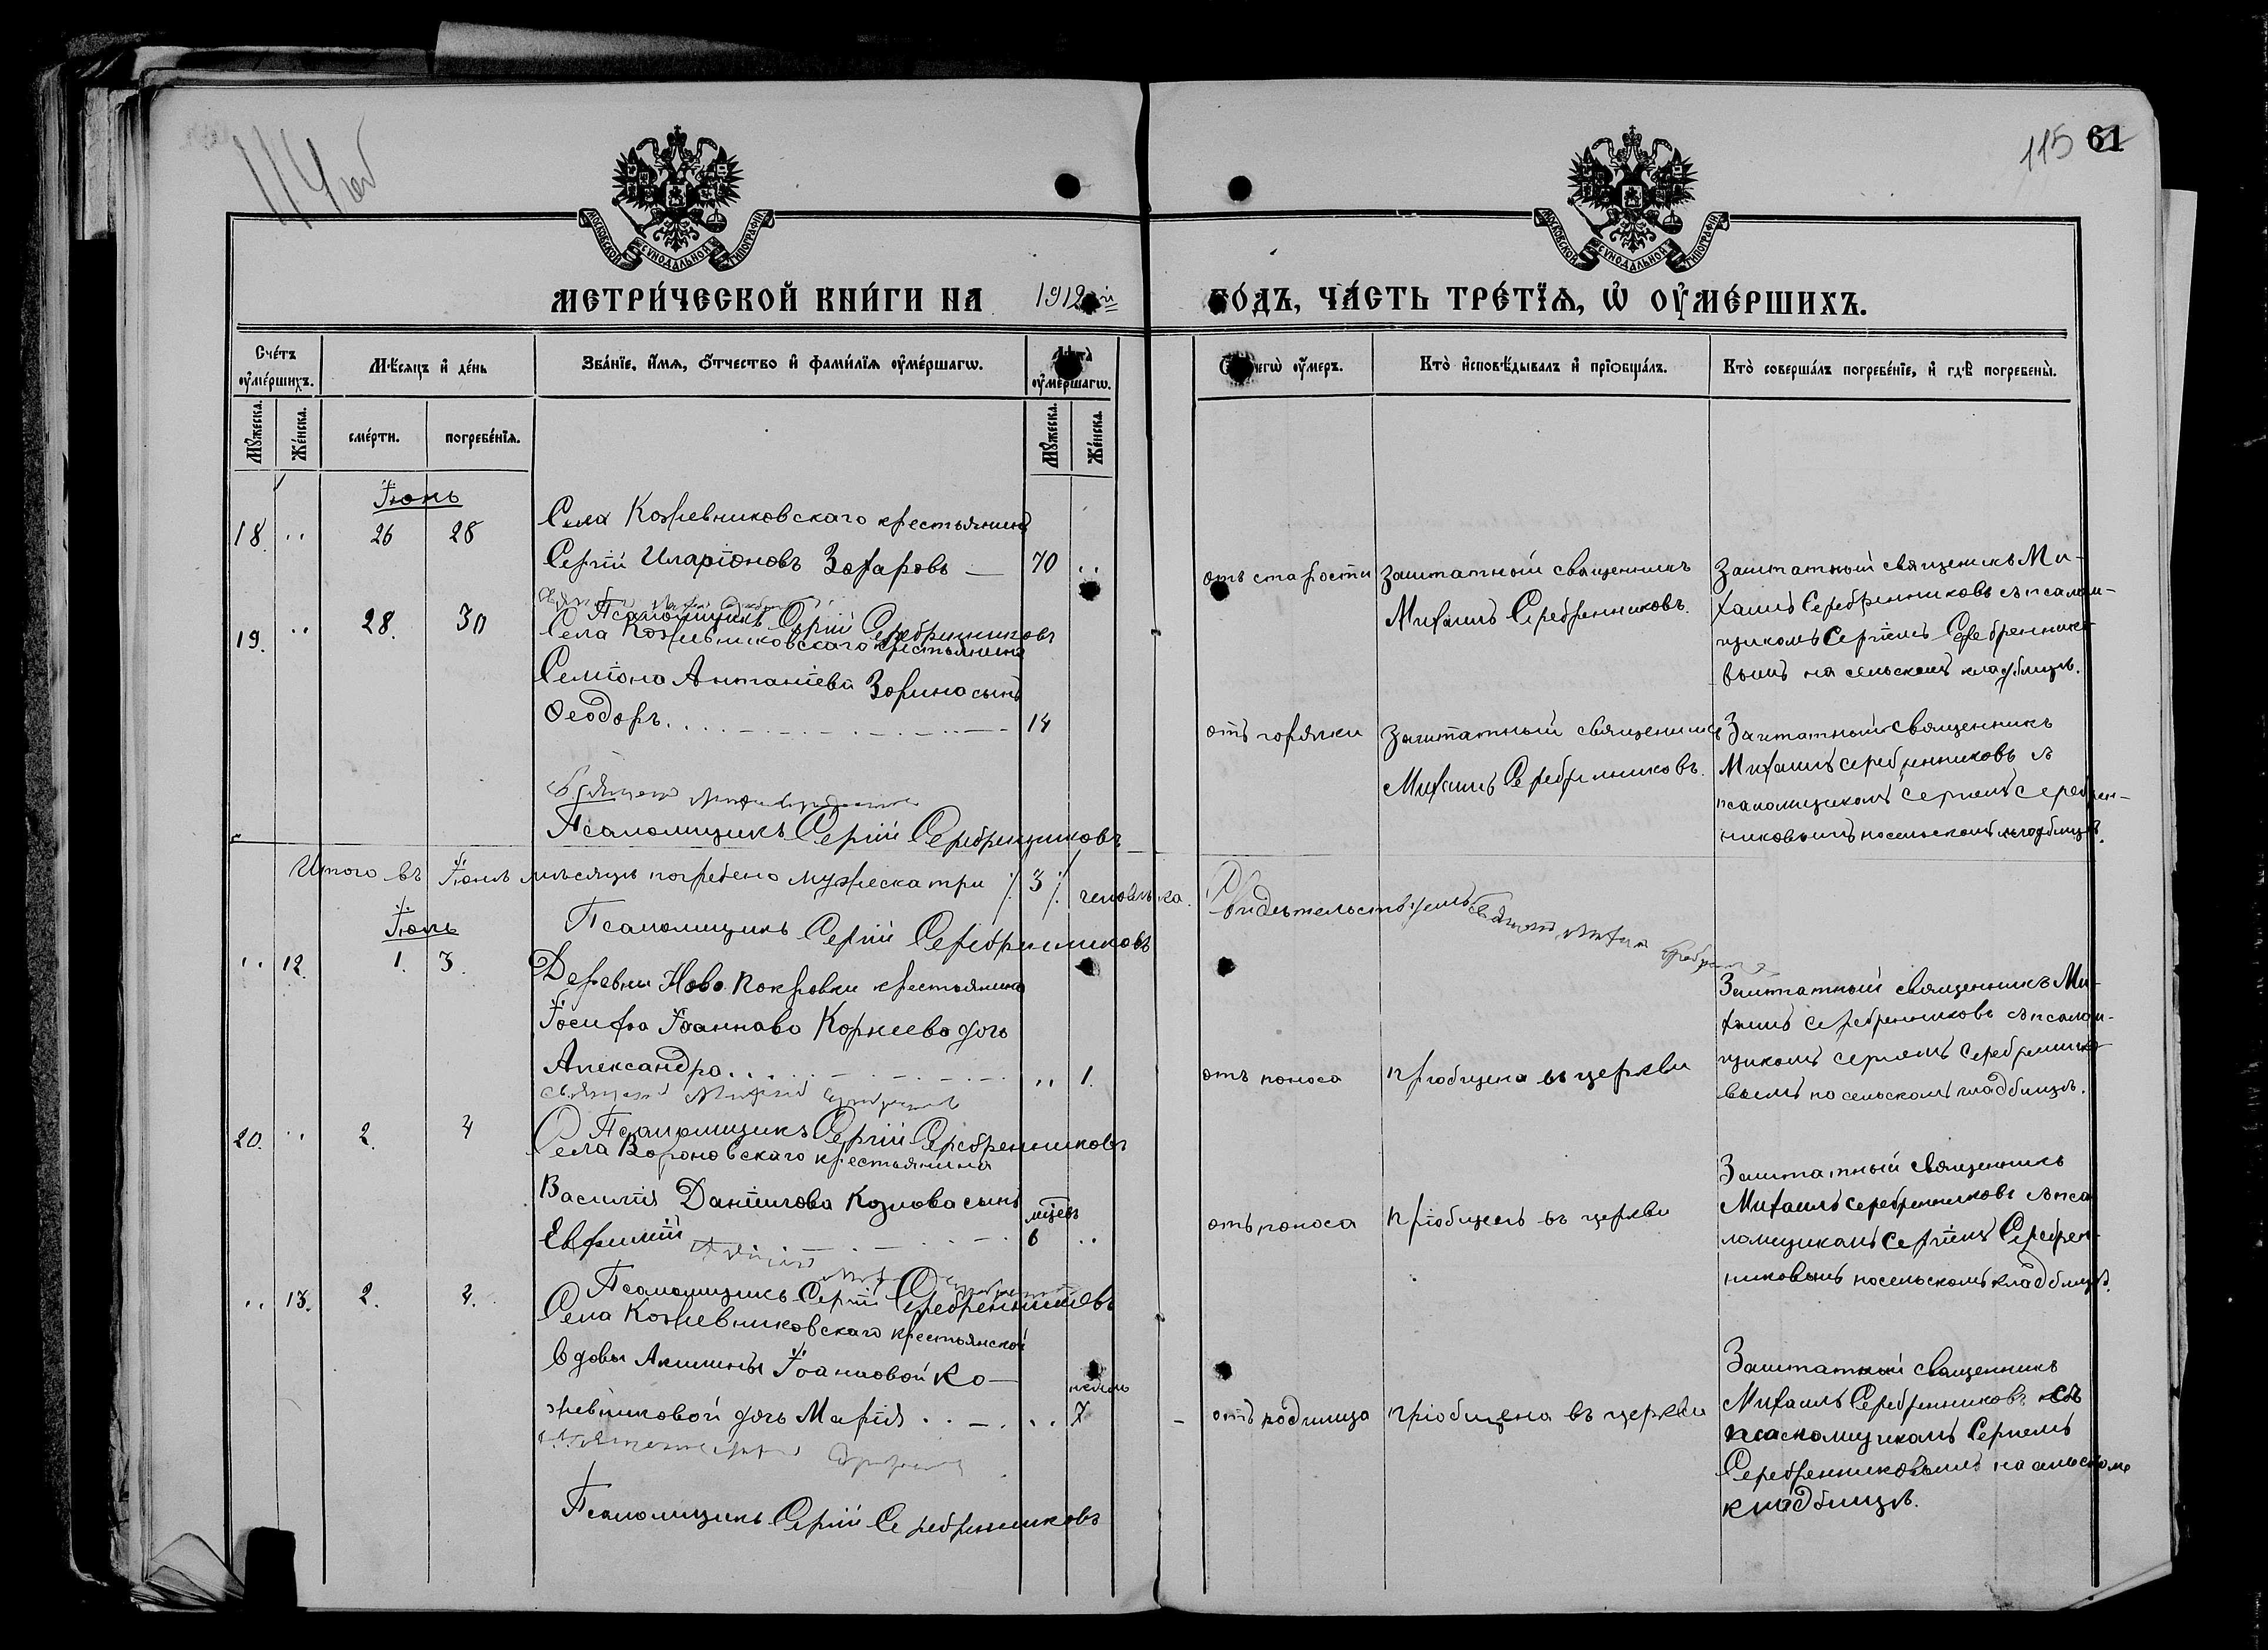 114 об
115 61
МОСКОВСКОЙ СѴНОДАЛЬНОЙ ТИПОГРАФІИ
МОСКОВСКОЙ СѴНОДАЛЬНОЙ ТИПОГРАФІИ
МЕТРИ́ЧЕСКОЙ КНИ́ГИ НА 1912й ГО́ДЪ, ЧА́СТЬ ТРЕ́ТЇѦ, Ѡ ОУМЕ́РШИХЪ.
Сче́тъ оуме́ршихъ.
Мѣ́сяцъ и де́нь
Зва́нїе, и́мѧ, о́тчество и фами́лїѧ оуме́ршагѡ.
оуме́ршагѡ.
оу́меръ.
Кто̀ исповѣ́дывалъ и прїѡбща́лъ.
Кто̀ соверша́лъ погребе́нїе, и гдѣ̀ погребены̀.
Мꙋ́жеска.
Же́нска.
сме́рти.
погребе́нїѧ.
Мꙋ́жеска.
Же́нска.
Іюнь
18. " 26 28 Села Кожевниковскаго крестьянинъ
Сергій Иларіоновъ Захаровъ — 70 "
отъ старости
Заштатный священникъ
Михаилъ Серебренниковъ.
Заштатный священикъ Ми-
хаилъ Серебренниковъ съ псалом-
щикомъ Сергіемъ Серебреннико-
вымъ на сельскомъ кладбищѣ.
Псаломщикъ Сергій Серебренниковъ
19. " 28. 30 Села Кожевниковскаго крестьянина
Семіона Антаніева Зорина сынъ
Ѳеодоръ. 14
отъ горячки
Заштатный священникъ
Михаилъ Серебренниковъ.
Заштатный священникъ
Михаилъ Серебренниковъ съ
псаломщикомъ Сергіемъ Серебрен-
никовымъ на сельскомъ кладбищѣ.
Псаломщикъ Сергій Серебренниковъ
Итого въ Іюнѣ мѣсяцѣ погребено мужеска три ∕. 3 ∕. человѣка.
Псаломщикъ Сергій Серебренниковъ
Іюль
" 12. 1. 3. Деревни Ново Покровки крестьянина
Іосифа Іоаннова Корнеева дочь
Александра. " 1.
отъ поноса
пріобщена въ церкви
Заштатный священникъ Ми-
хаилъ Серебренниковъ съ псалом-
щикомъ Сергіемъ Серебреннико-
вымъ на сельскомъ кладбищѣ.
Псаломщикъ Сергій Серебренниковъ
20. " 2. 4 Села Вороновскаго крестьянина
Василія Даніилова Козлова сынъ
Евфимій мцевъ 6 "
отъ поноса
пріобщенъ въ церкви
Заштатный священникъ
Михаилъ Серебренниковъ съ пса
ломщикомъ Сергіемъ Серебрен-
никовымъ на сельскомъ кладбищѣ.
Псаломщикъ Сергій Серебренниковъ
" 13. 2. 4. Села Кожевниковскаго крестьянской
вдовы Акилины Іоанновой Ко-
жевниковой дочь Марія " недѣль 7
отъ родимца
пріобщена въ церкви
Заштатный священникъ
Михаилъ Серебренниковъ съ
псаломщикомъ Сергіемъ
Серебренниковымъ на сельскомъ
кладбищѣ.
Псаломщикъ Сергій Серебренниковъ